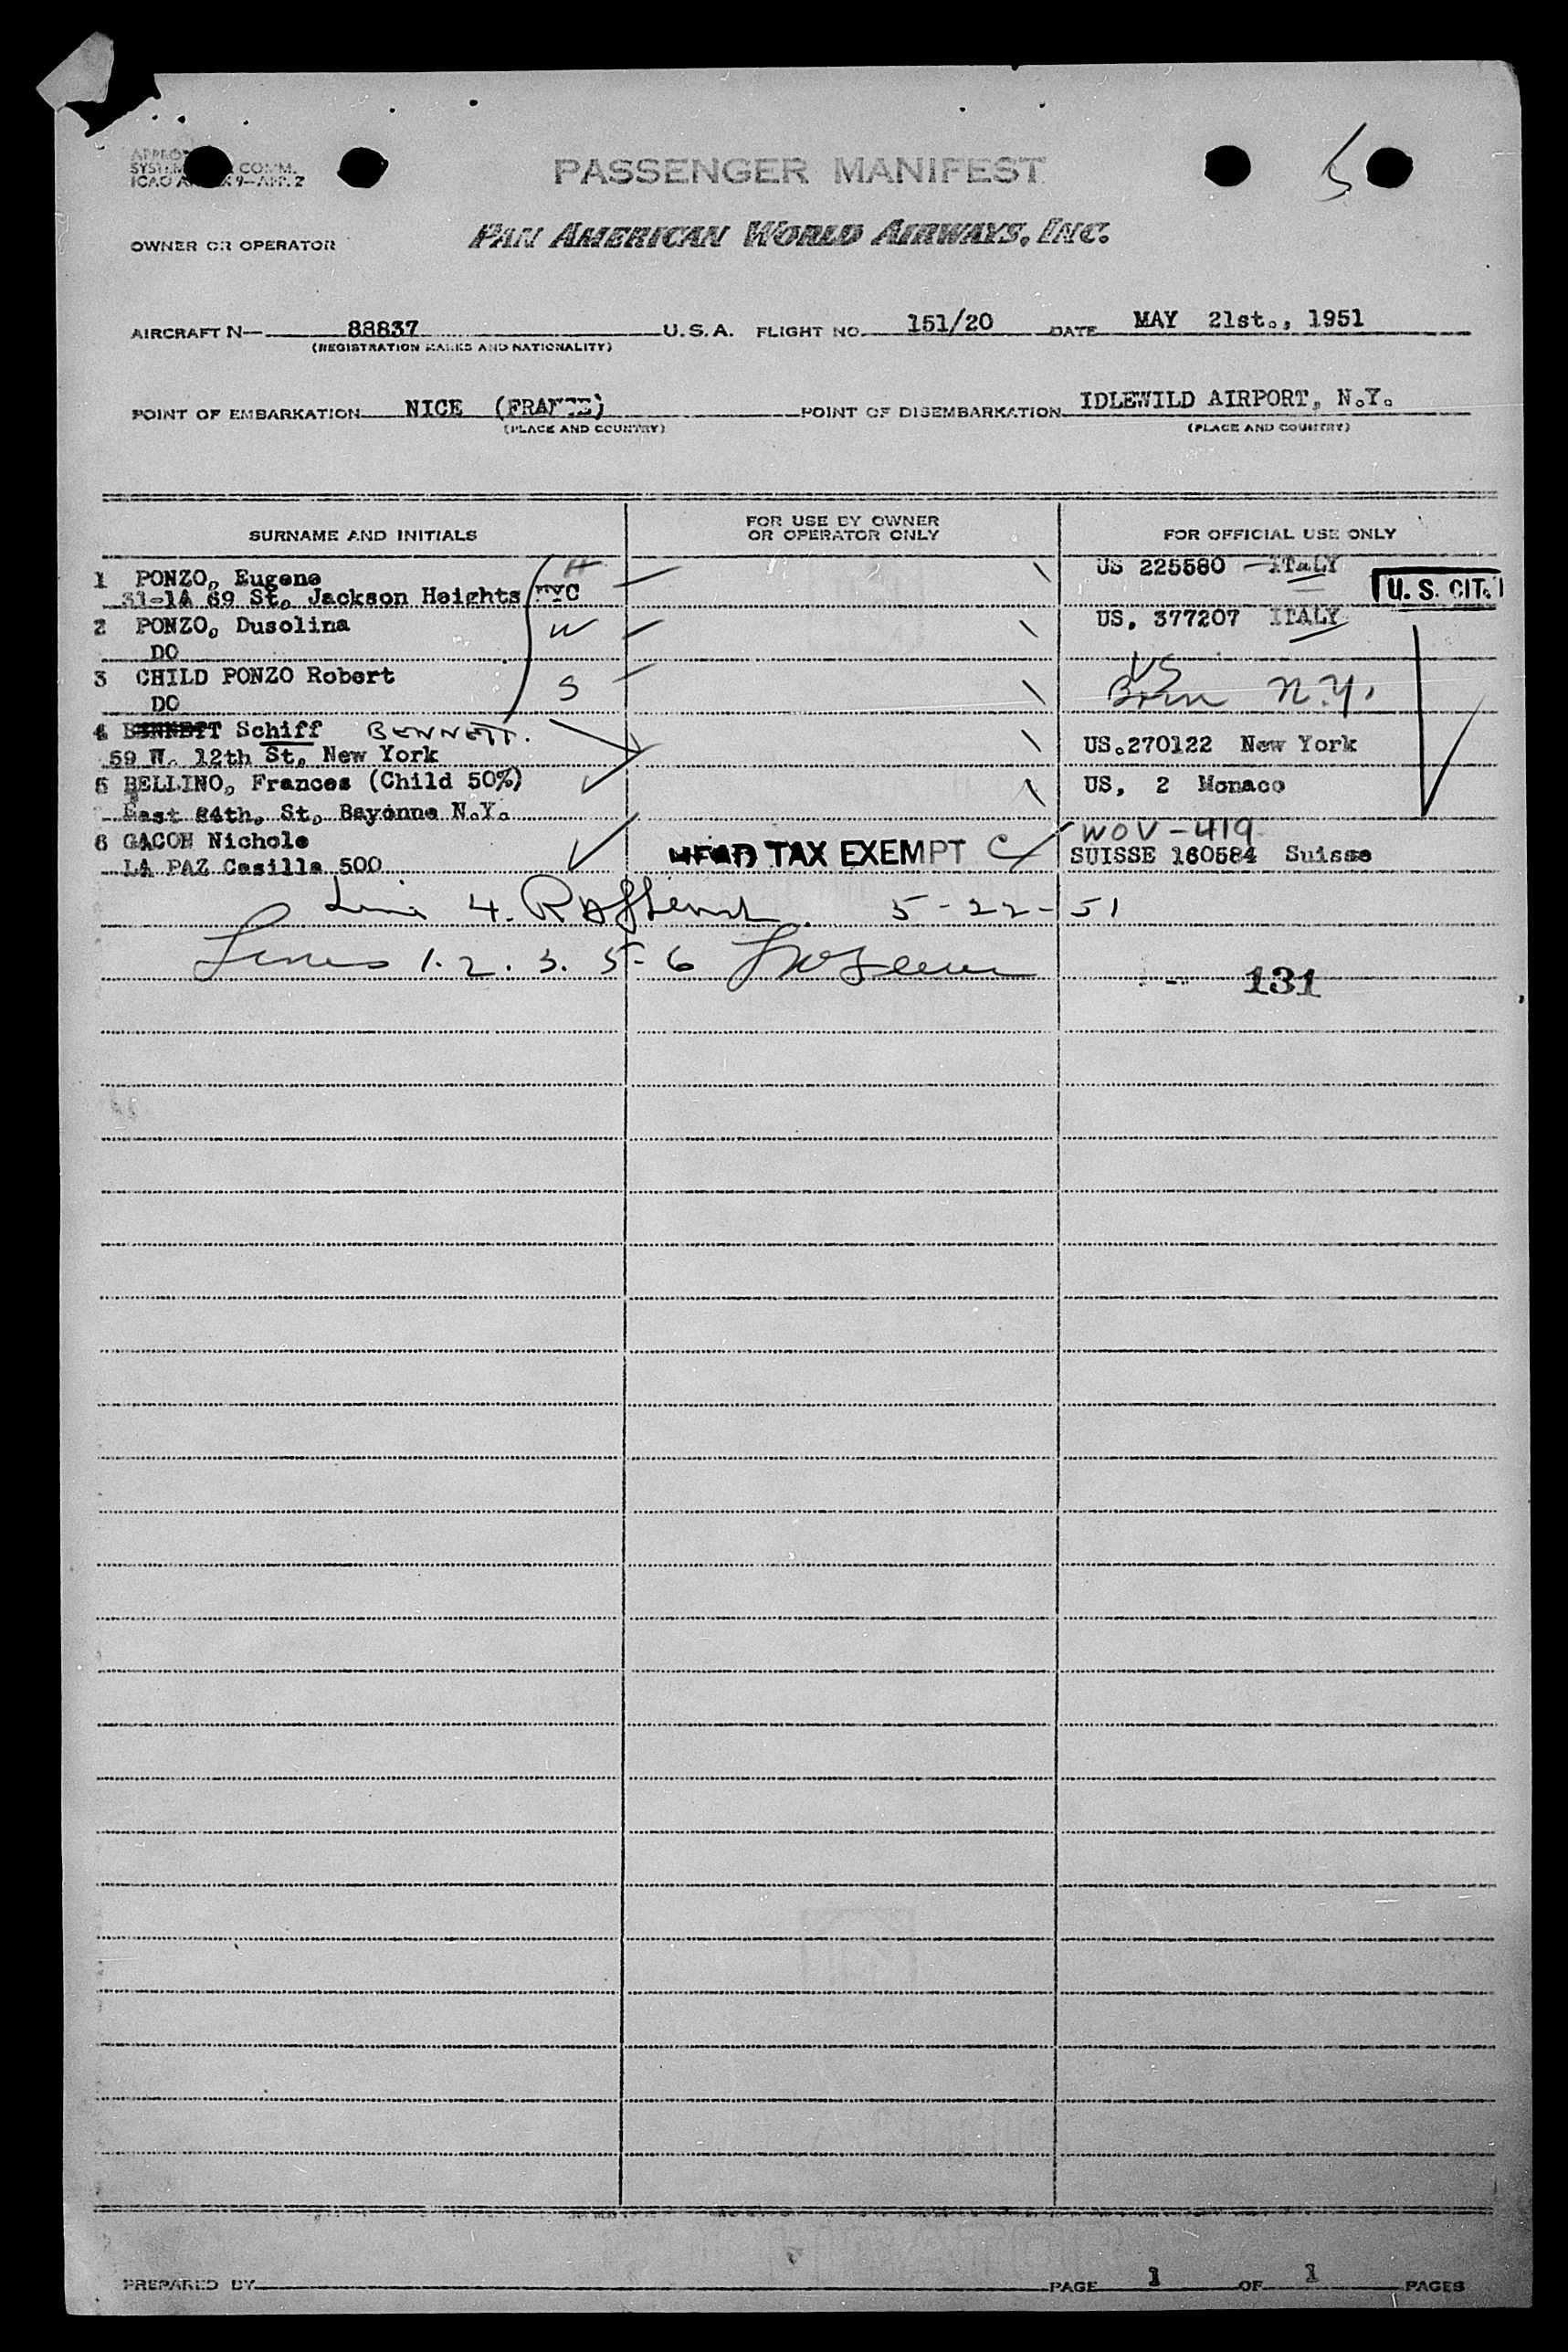 PASSENGER MANIFEST
5
SYSTEM COMM.
ICAO 9-APP. 2
OWNER OR OPERATOR
PAN AMERICAN WORLD AIRWAYS, INC.
AIRCRAFT N— 88837 U.S.A. FLIGHT NO. 151/20 DATE MAY 21st., 1951
(REGISTRATION MARKS AND NATIONALITY)
POINT OF EMBARKATION NICE (FRANCE) POINT OF DISEMBARKATION IDLEWILD AIRPORT, N.Y.
(PLACE AND COUNTRY) (PLACE AND COUNTRY)
SURNAME AND INITIALS FOR USE BY OWNER OR OPERATOR ONLY FOR OFFICIAL USE ONLY
1 PONZO, Eugene H US 225580 ITALY
31-1A 69 St, Jackson Heights NYC U.S. CIT.
2 PONZO, Dusolina W US, 377207 ITALY
DO
3 CHILD PONZO Robert S US
DO Born N.Y.
4 BENNETT Schiff BENNETT. US.270122 New York
59 W. 12th St, New York
5 BELLINO, Frances (Child 50%) US, 2 Monaco
East 24th, St, Bayonne N.Y.
6 GACON Nichole WOV-419
LA PAZ Casilla 500 HEAD TAX EXEMPT C SUISSE 160584 Suisse
Line 4. 5-22-51
Lines 1. 2. 3. 5-6
131
PREPARED BY PAGE 1 OF 1 PAGES